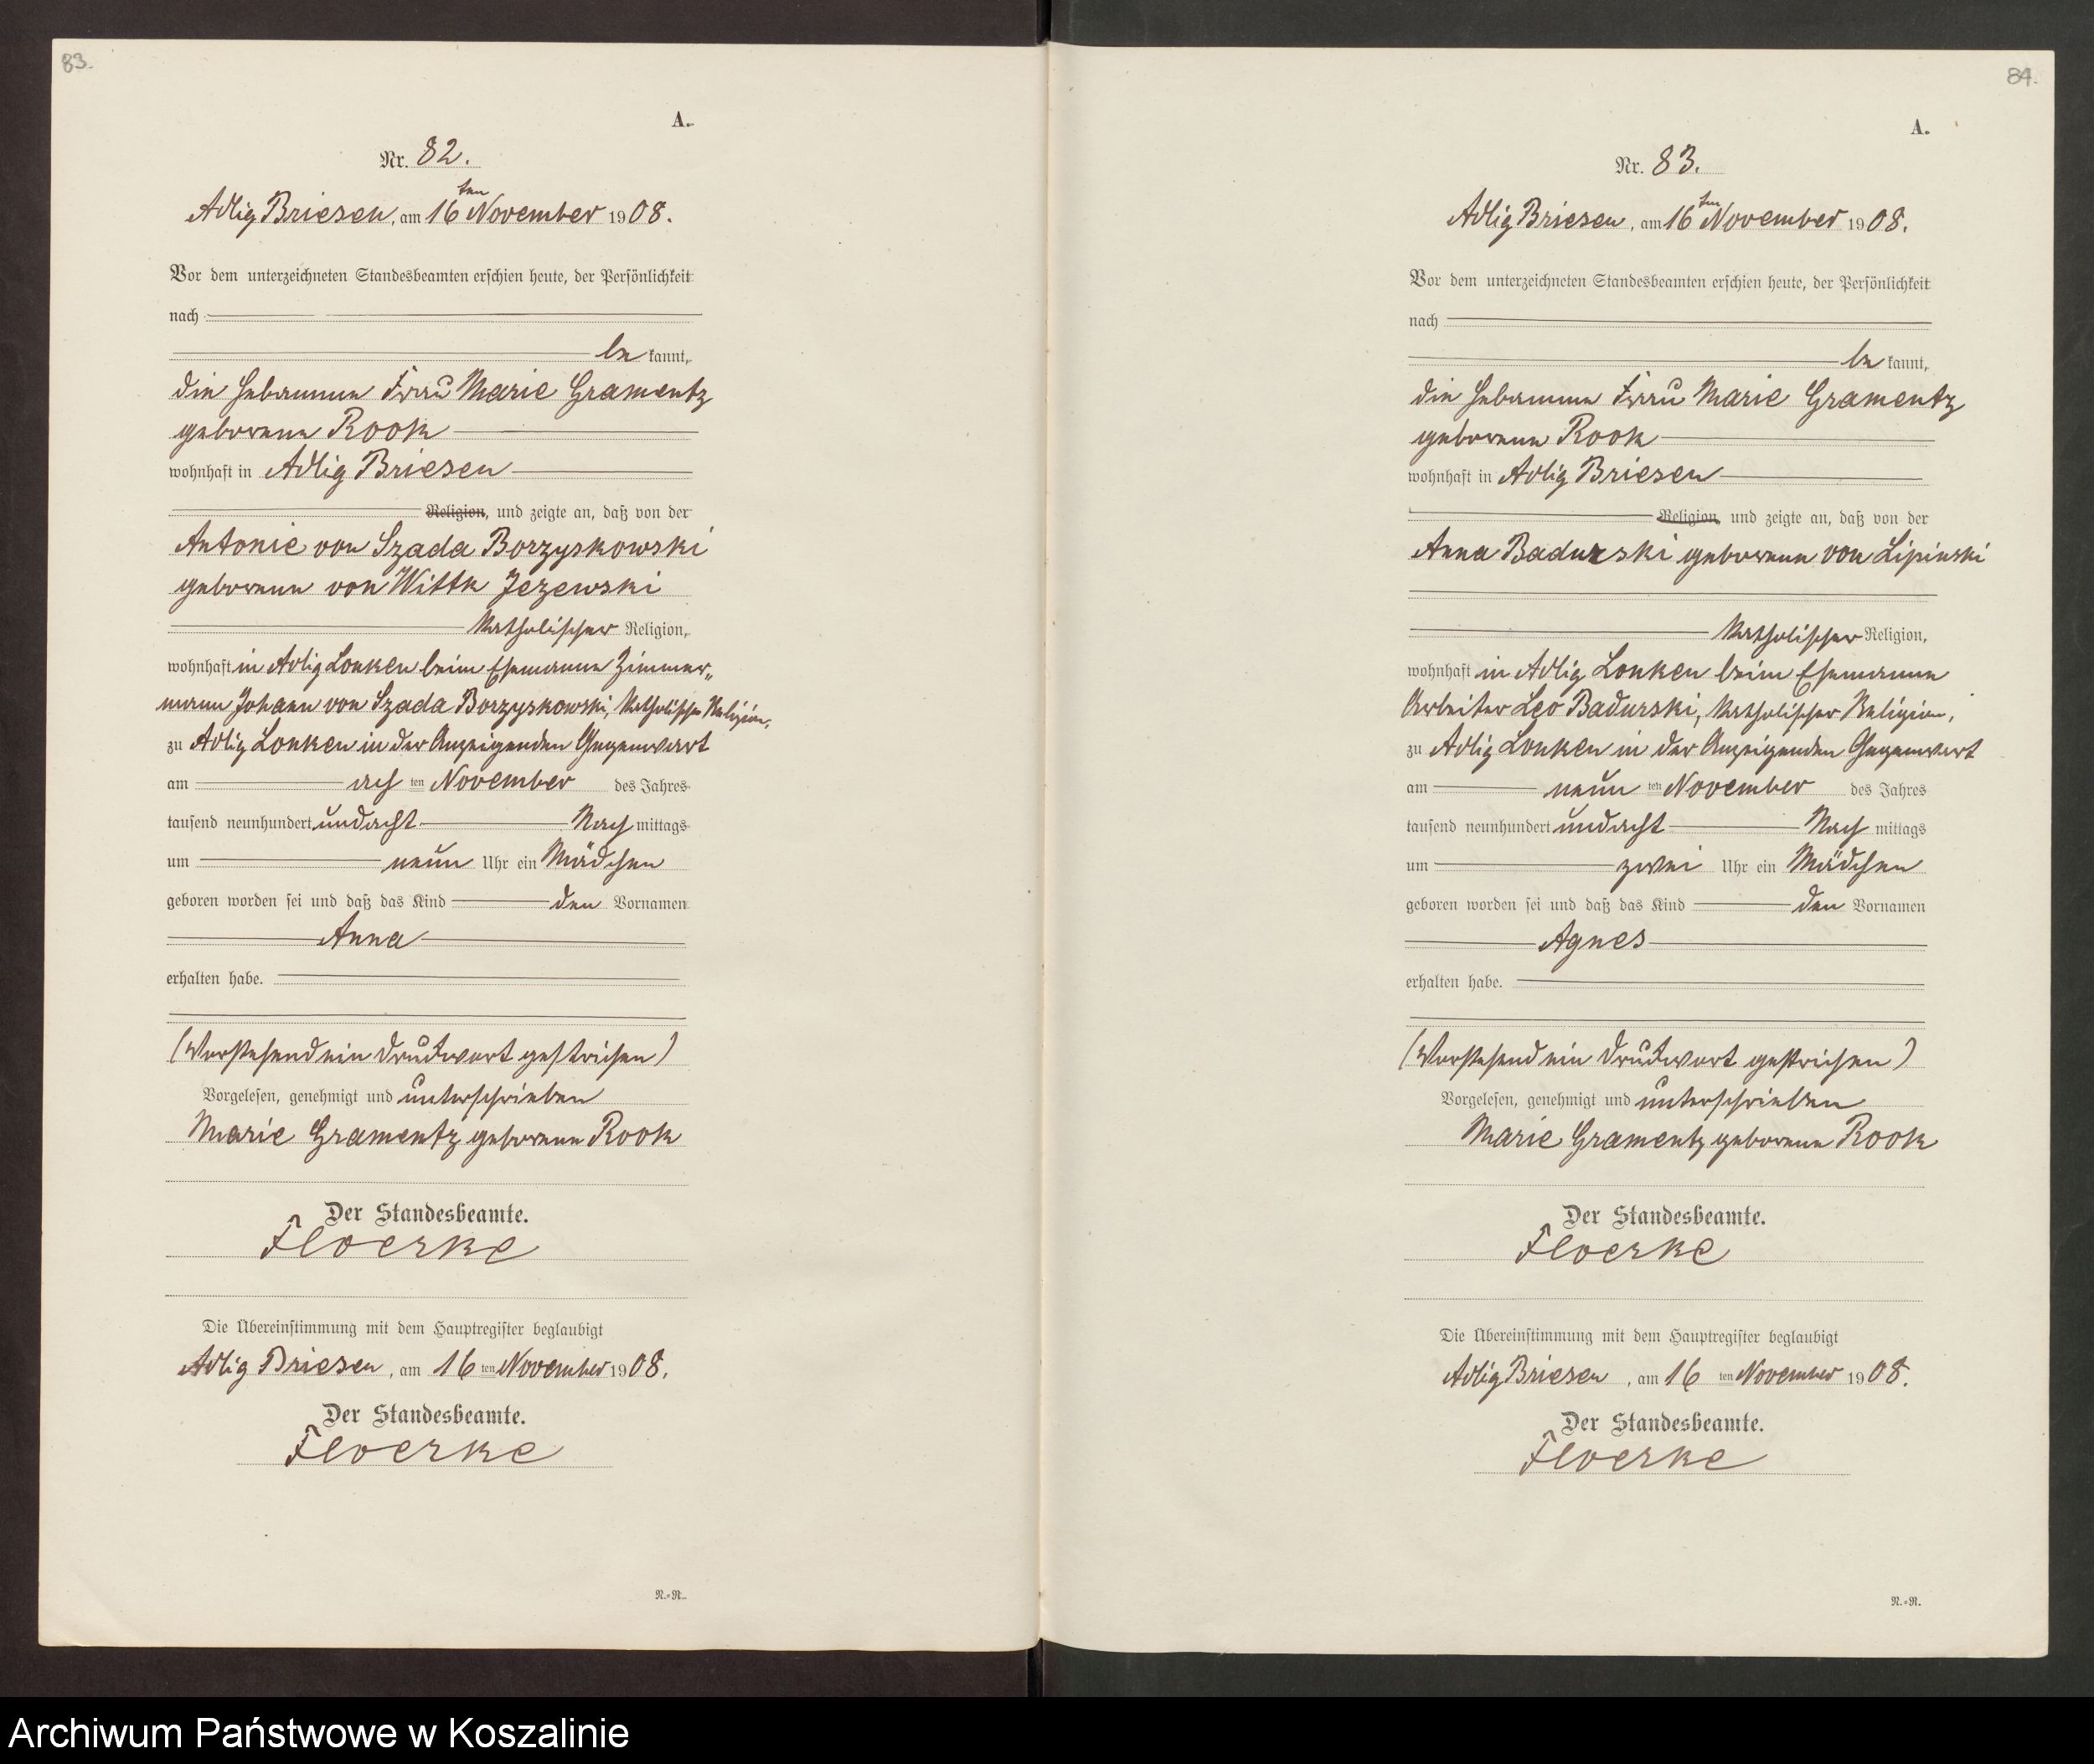 83.
A.
Nr. 82.
Adlig Briesen, am 16ten November 1908.
Vor dem unterzeichneten Standesbeamten erschien heute, der Persönlichkeit
nach
be kannt,
die Hebamme Frau Marie Gramentz
geborene Rook
wohnhaft in Adlig Briesen
Religion, und zeigte an, daß von der
Antonie von Szada Borzyskowski
geborene von Wittk Jezewski
katholischer Religion,
wohnhaft in Adlig Lonken beim Ehemanne Zimmer„
mann Johann von Szada Borzyskowski, katholischer Religion,
zu Adlig Lonken in der Anzeigenden Gegenwart
am ach ten November des Jahres
tausend neunhundert undacht Nach mittags
um neun Uhr ein Mädchen
geboren worden sei und daß das Kind den Vornamen
Anna
erhalten habe.
(Vorstehend ein Druckwort gestrichen)
Vorgelesen, genehmigt und unterschrieben
Marie Gramentz geborene Rook
Der Standesbeamte.
Floerke
Die Übereinstimmung mit dem Hauptregister beglaubigt
Adlig Briesen, am 16 ten November 1908.
Der Standesbeamte.
Floerke
N.=R.
84.
A.
Nr. 83.
Adlig Briesen, am 16ten November 1908.
Vor dem unterzeichneten Standesbeamten erschien heute, der Persönlichkeit
nach
be kannt,
die Hebamme Frau Marie Gramentz
geborene Rook
wohnhaft in Adlig Briesen
Religion, und zeigte an, daß von der
Anna Badurski geborene von Lipinski
katholischer Religion,
wohnhaft in Adlig Lonken beim Ehemanne
Arbeiter Leo Badurski, katholischer Religion,
zu Adlig Lonken in der Anzeigenden Gegenwart
am neun ten November des Jahres
tausend neunhundert undacht Nach mittags
um zwei Uhr ein Mädchen
geboren worden sei und daß das Kind den Vornamen
Agnes
erhalten habe.
(Vorstehend ein Druckwort gestrichen)
Vorgelesen, genehmigt und unterschrieben
Marie Gramentz geborene Rook
Der Standesbeamte.
Floerke
Die Übereinstimmung mit dem Hauptregister beglaubigt
Adlig Briesen, am 16 ten November 1908.
Der Standesbeamte.
Floerke
N.=R.
Archiwum Państwowe w Koszalinie